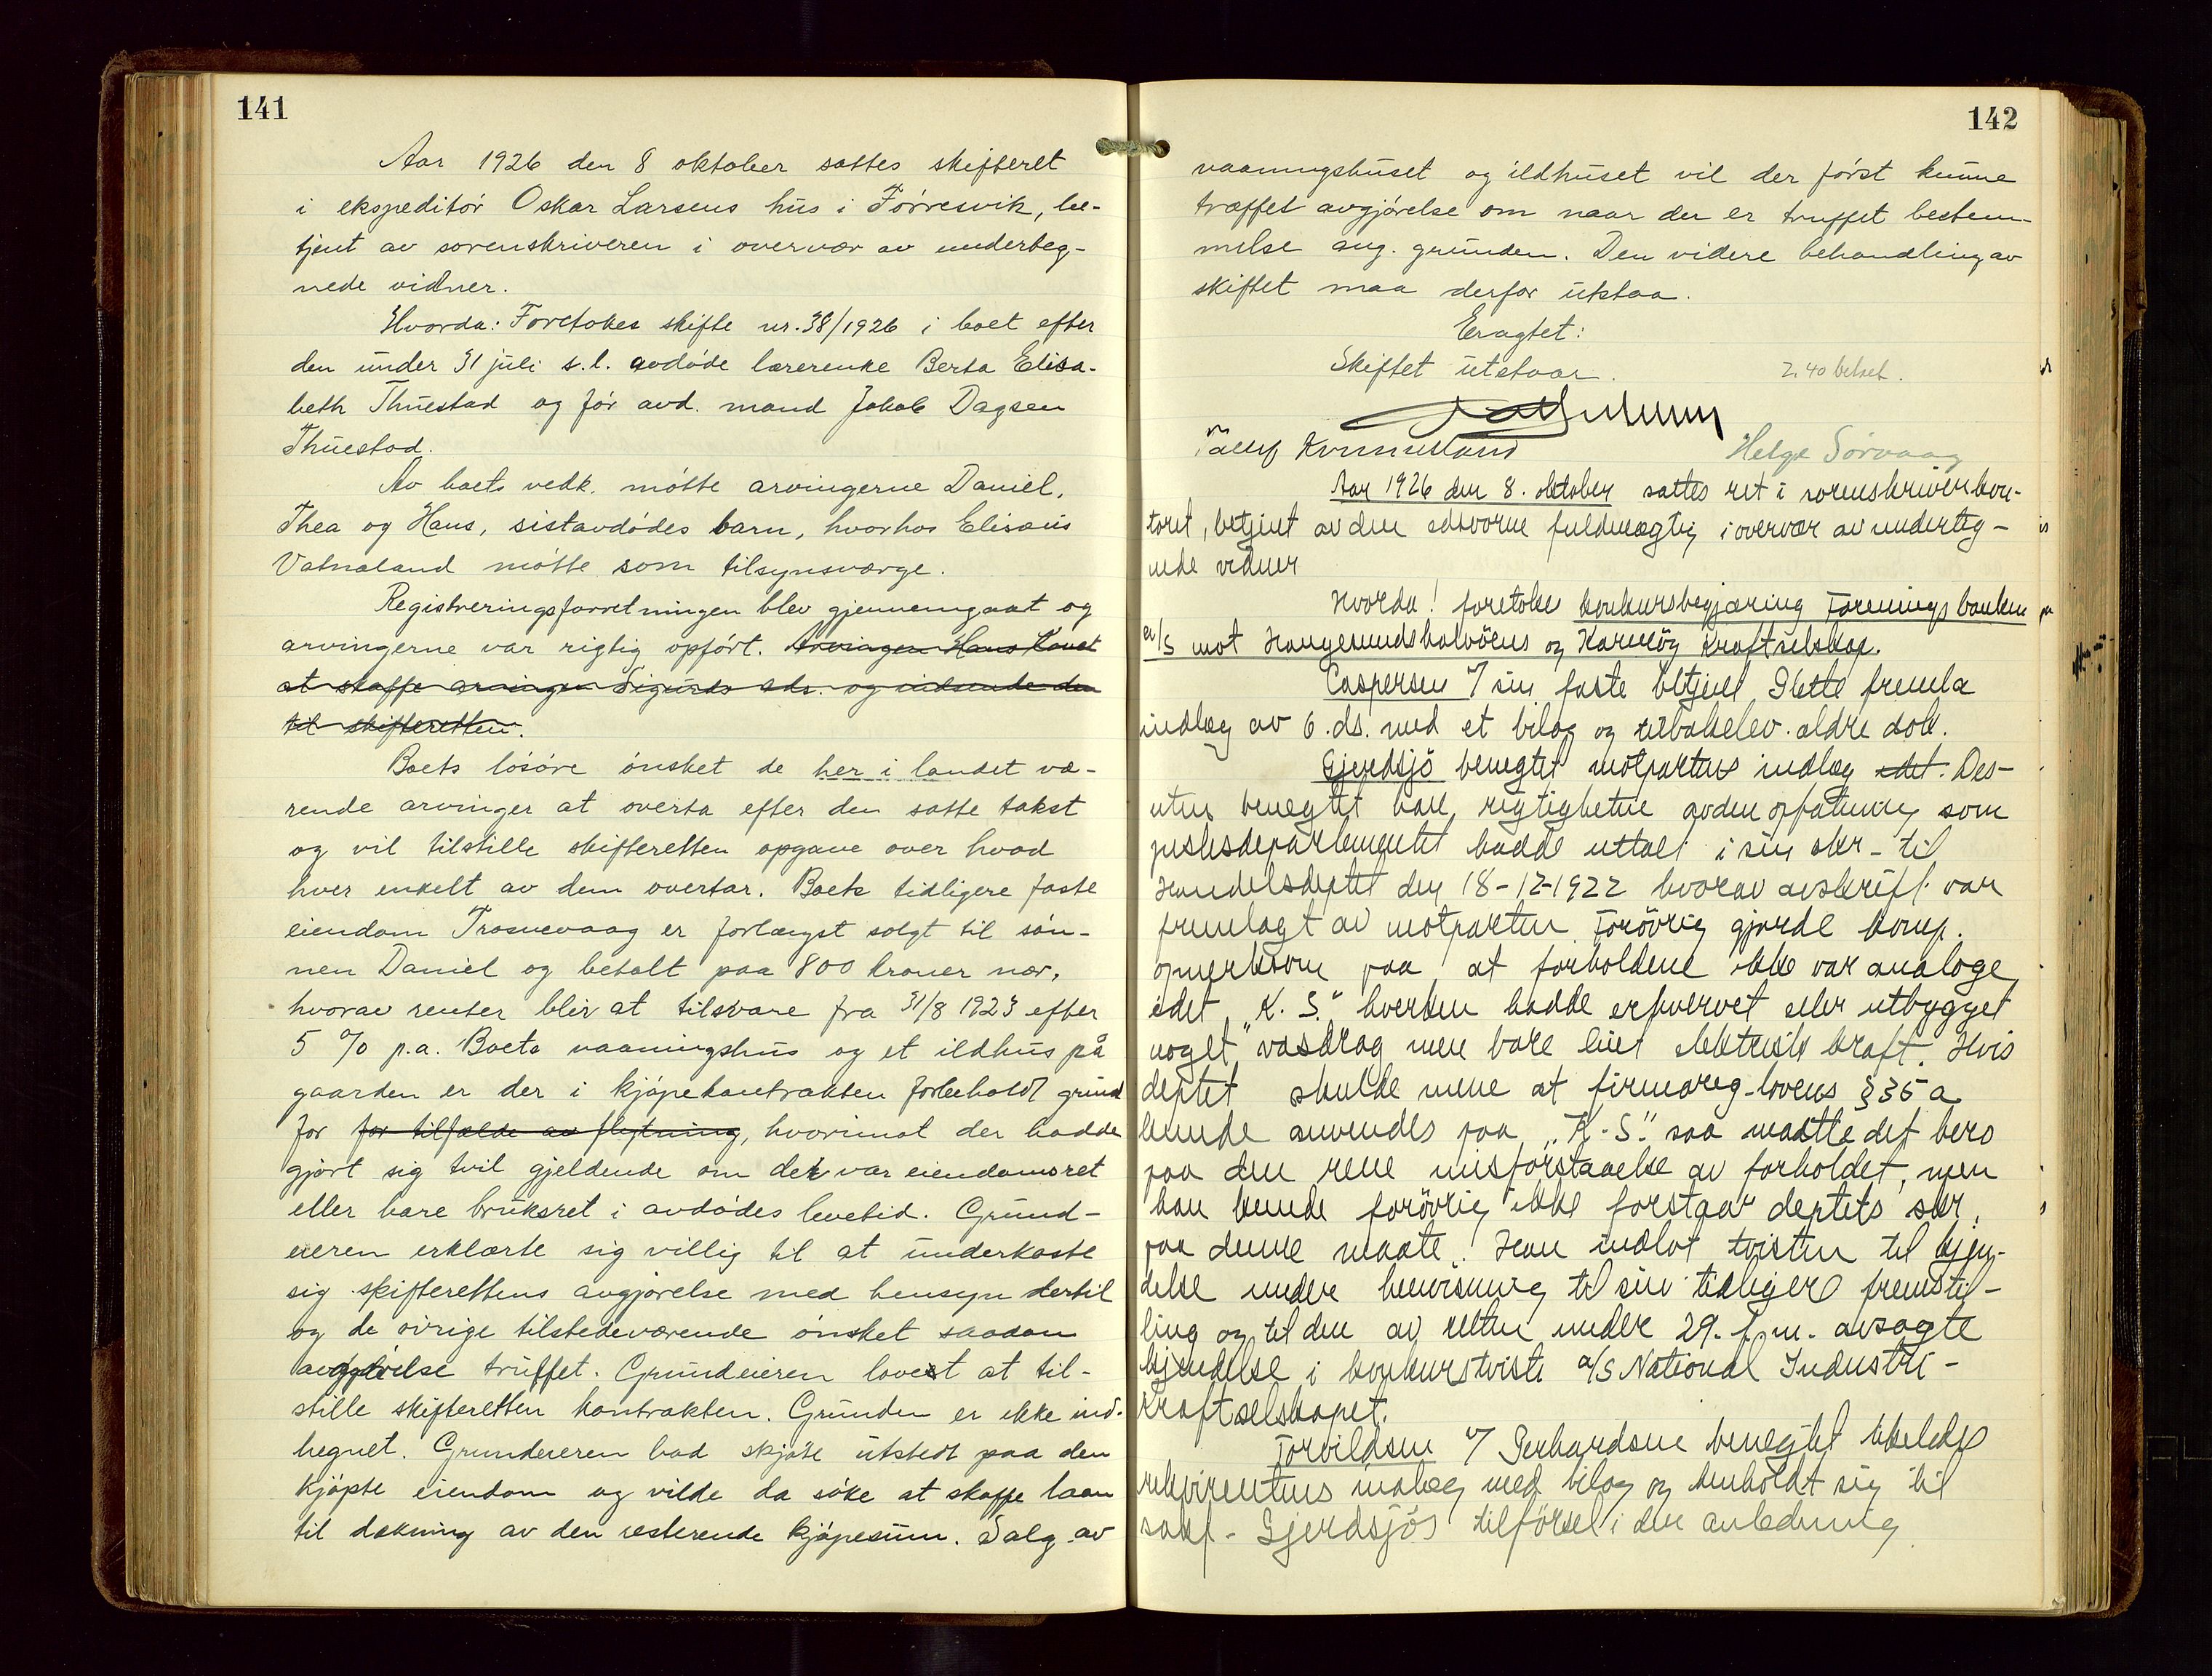 141
Aar 1926 den 8 oktober sattes skifteret
i ekspeditör Oskar Larsens hus i Förresvik, be-
tjent av sorenskriveren i overvær av underteg-
nede vidner.
Hvorda: Foretokes skifte nr. 38/1926 i boet efter
den under 31 juli s.l. avdöde lærerenke Berta Elisa-
beth Thuestad og för avd. mand Jakob Dagsen
Thuestad.
Av boets vedk. mötte arvingerne Daniel,
Thea og Hans, sistavdödes barn, hvorhos Elisæus
Vatnaland mötte som tilsynsværge.
Registreringsforretningen blev gjennemgaat og
arvingerne var rigtig opfört. Arvingen Hans lovet
at skaffe arvingen Sigurds adr. og indsende den
til skifteretten.
Boets lösöre önsket de her i landet væ-
rende arvinger at overta efter den satte takst
og vil tilstille skifteretten opgave over hvad
hver enkelt av dem overtar. Boets tidligere faste
eiendom Trosnevaag er forlængst solgt til sön-
nen Daniel og betalt paa 800 kroner nær,
hvorav renter blir at tilsvare fra 31/8 1923 efter
5 % p.a. Boets vaaningshus og et ildhus på
gaarden er der i kjöpekontrakten forbeholdt grund
for for tilfælde av flytning, hvorimot der hadde
gjort sig tvil gjeldende om det var eiendomsret
eller bare bruksret i avdödes levetid. Grund-
eieren erklærte sig villig til at underkaste
sig skifterettens avgjörelse med hensyn dertil
og de övrige tilstedeværende önsket saadan
avgjörelse truffet. Grundeieren lovet at til-
stille skifteretten kontrakten. Grunden er ikke ind-
hegnet. Grundeieren bad skjöte utstedt paa den
kjöpte eiendom og vilde da söke at skaffe laan
til dækning av den resterende kjöpesum. Salg av
142
vaaningshuset og ildhuset vil der först kunne
træffes avgjörelse om naar der er truffet bestem-
melse ang. grunden. Den videre behandling av
skiftet maa derfor utstaa.
Eragtet:
Skiftet utstaar. 2.40 betalt.
Helge Sörvaag
Aar 1926 den 8. oktober sattes ret i sorenskriverkon-
toret, betjent av den edsvorne fuldmægtig i overvær av underteg-
nede vidner
Hvorda! foretokes konkursbegjæring Foreningsbanken
a/s mot Haugesundshalvöens og Karmöy Kraftselskap.
Caspersen v/ sin faste betjent Slette fremla
indlæg av 6. ds. med et bilag og tilbakelev. ældre dok.
Gjerdsjö benegtet motpartens indlæg idet. Des-
uten benegtet han rigtigheten av den opfatning som
justisdepartementet hadde uttalt i sin skr. til
Handelsdeptet den 18-12-1922 hvorav avskrift var
fremlagt av motparten. Forövrig gjorde komp.
opmerksom paa at forholdene ikke var analoge
idet "K. S." hverken hadde erhvervet eller utbygget
noget vasdrag men bare leiet elektrisk kraft. Hvis
deptet skulde mene at firmareg-lovens § 35 a
kunde anvendes paa "K. S." saa maatte det bero
paa den rene misforstaaelse av forholdet, men
han kunde forövrig ikke forstaa deptets skr.
paa denne maate. Han indlot tvisten til kjen-
delse under henvisning til sin tidligere fremstil-
ling og til den av retten under 29. f.m. avsagte
kjendelse i konkurstviste a/s National Industri-
Kraftselskapet.
Torvildsen v/ Gerhardsen benegtet likeledes
rekvirentens indlæg med bilag og henholdt sig til
sakf. Gjerdsjös tilförsel i den anledning